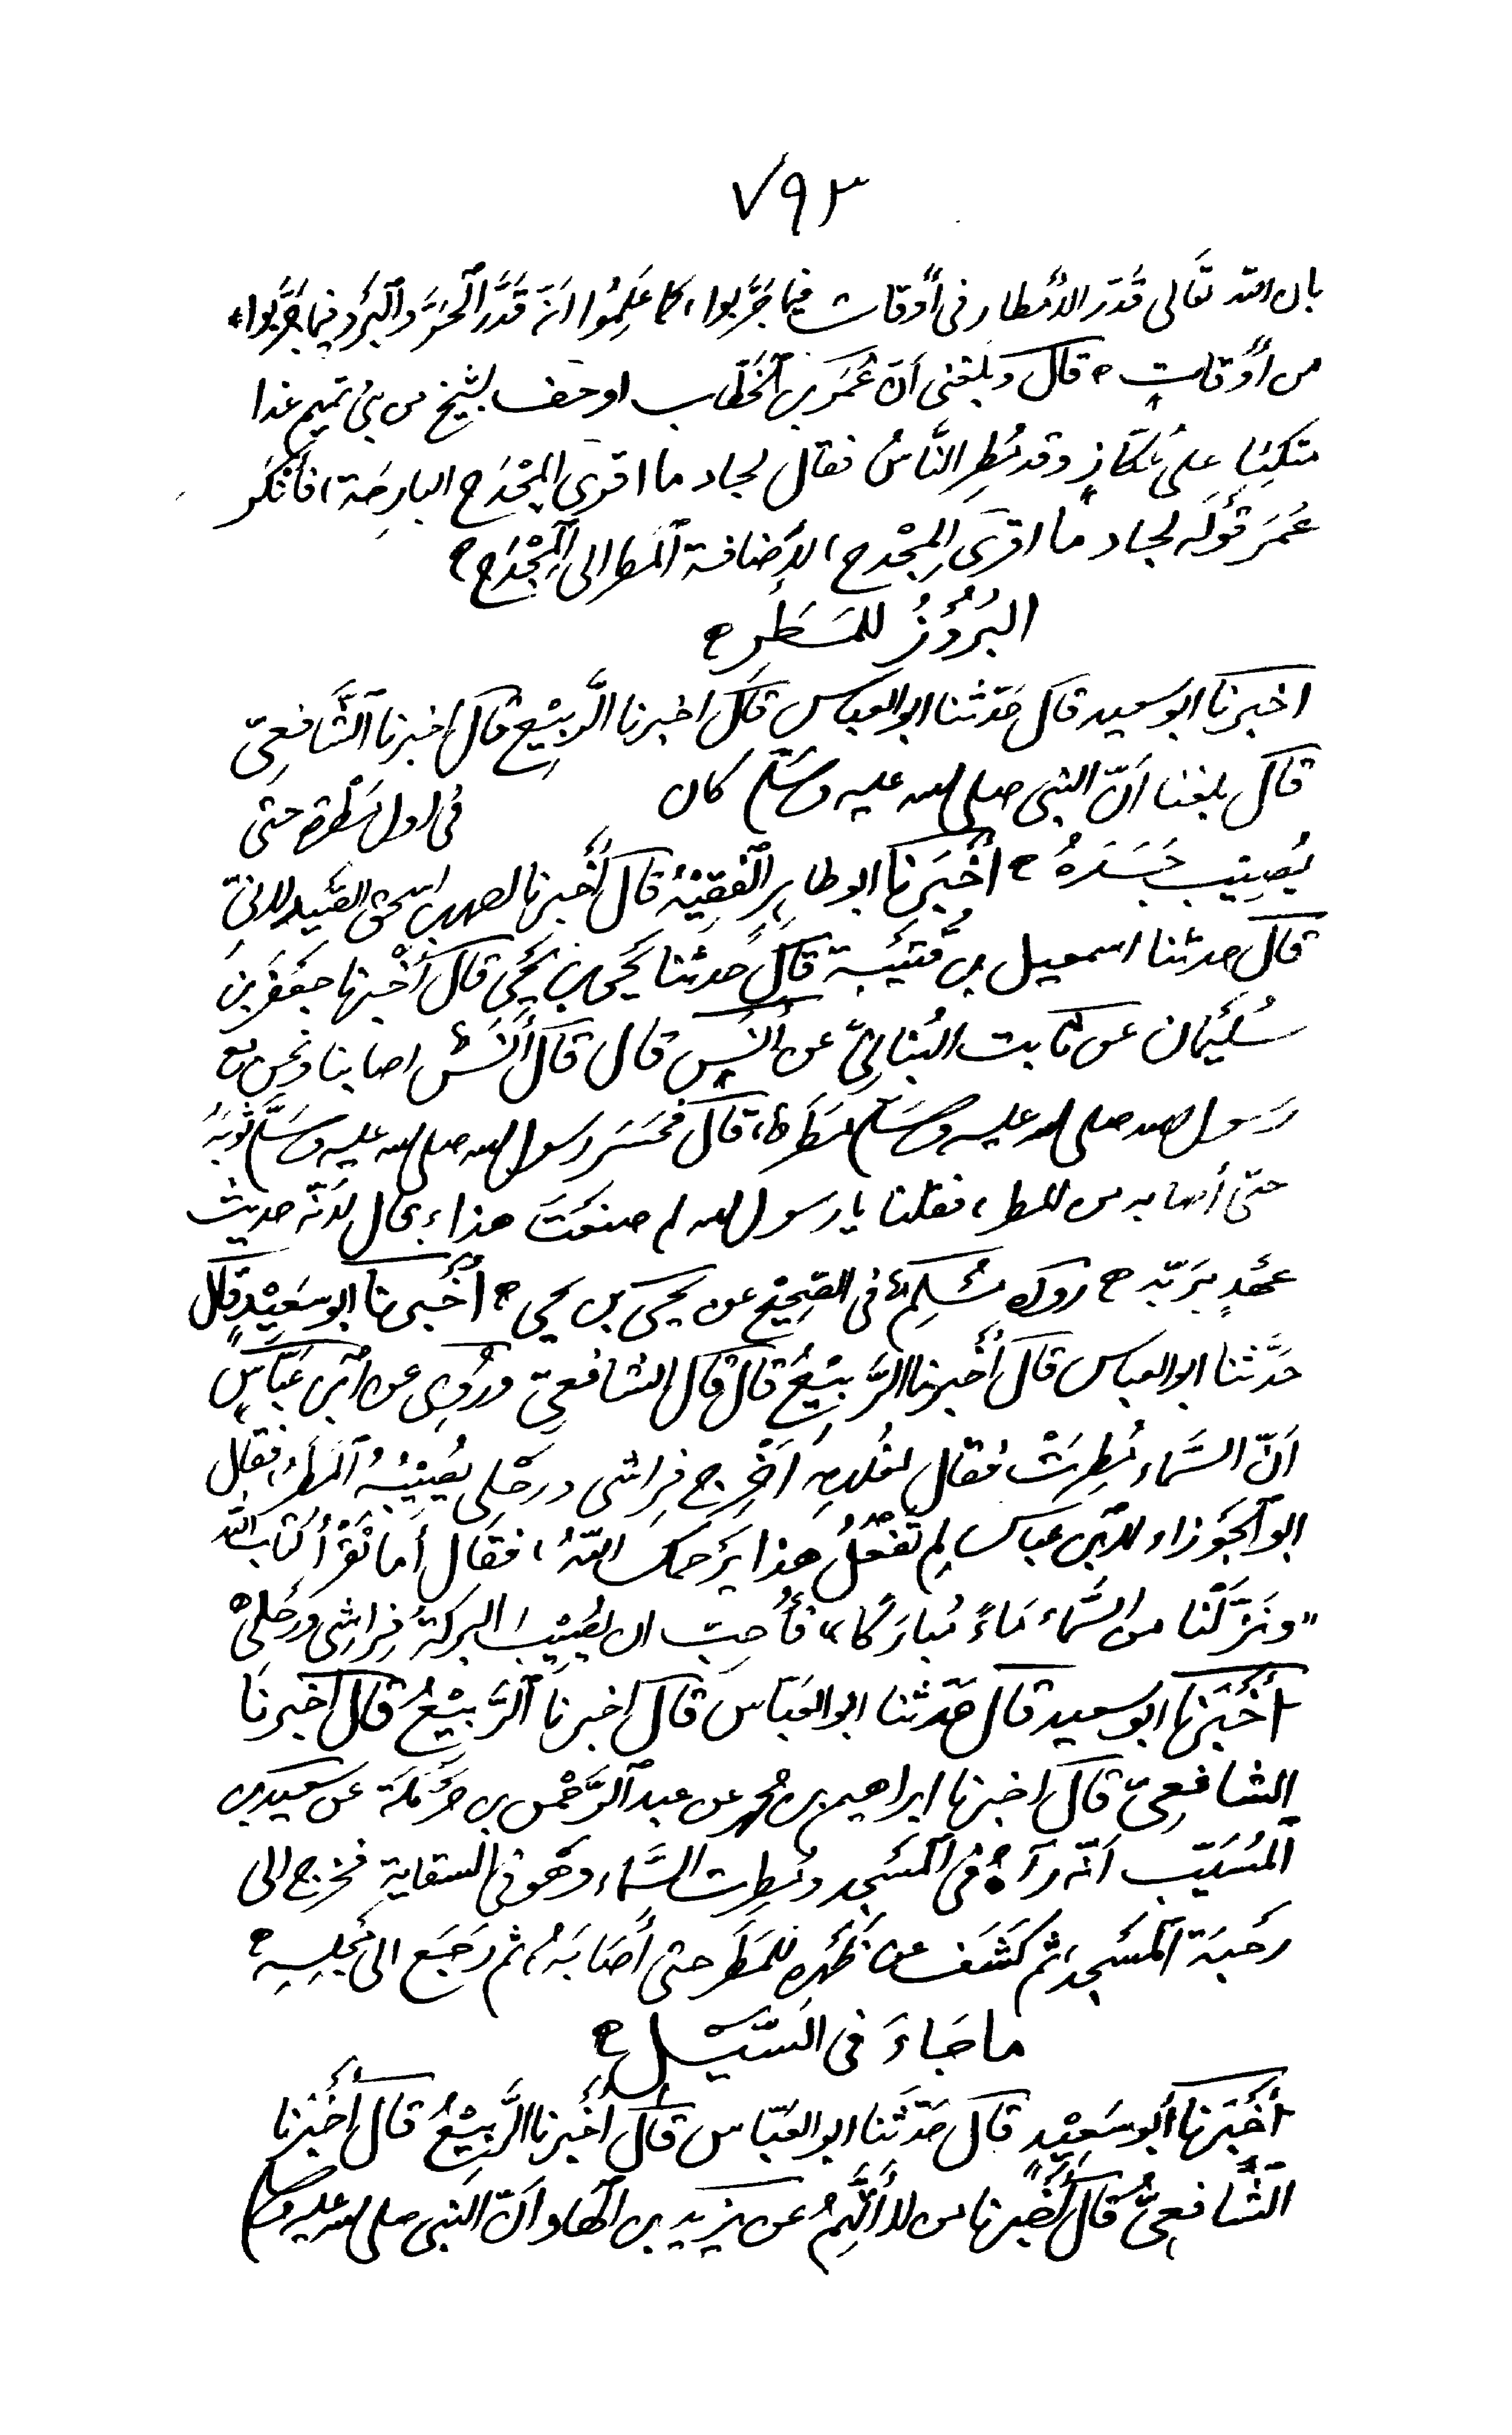 ٧٩٣
بان الله تعالى قَدَّر الأمطار فى أَوقات فيما جَرَّبوا، كما عَلِمُوا انَّهَ قَدَّرَ الْحَرَّ وَالْبَرْدَ فيما جَرَّبوا،
من أَوقاتٍ ه قال وبلغنى أنّ عُمَرَ بن الْخَطَّاب اوجف بشيخ من بنى تميم غدا
متكئا على عُكّازٍ وقد مُطِرَ النَّاسُ فقال لجاد ما اقرى الْمِجْدَح البارحَة، فأنْكَر
عُمَرَ قَوْلَه لجاد ما اقرَى الْمِجْدح، لإِضافة الْمطر الى الْمِجْدَح ه
البُرُوْزُ للمَطَرِ ه
اخبرنا ابو سعيد قال حَدّثنا ابو العباس قال اخبرنا الرَّبِيْع قال اخبرنا الشَّافِعِىّ
قال بلغنا أَنّ النبى صلى الله عليه وسَلَّم كان فى اول مَطْرة حتى
يُصِيْبَ جَسَدَهُ ه أَخْبَرنا ابو طاهِرٍ الْفَقِيْهُ قال أَخْبرنا
قال حدثنا اسمعيل بن قُتَيْبة قال حَدثنا يَحيى بن يَحيى قال أَخْبرنا جعفَر بن
سُلَيْمان عن ثابت البُنانِىّ عن أَنَسٍ قال قال أَنَسٌ اصابنا ونحن مع
رَسول الله صلى الله عليه وسَلَّم مَطَرٌ، قال فحَسَرَ رسول الله صلى الله عليه وسَلَّم ثوبَهُ
حتى أصابه من المطر، فقلنا يا رسول الله لم صنعْتَ هذا، قال لأَنّه حديث
عَهْدٍ بِرَبّه ه رواه مُسْلِمٌ فى الصّحِيْح عن يحيى بن يحيى ه أَخْبرنا ابو سَعِيْدٍ قال
حَدَّثنا ابو العباس قال أَخْبرنا الرَّبِيْعُ قال قال الشافعىّ ورُوِى عن ابْن عَبّاسٍ
أَنّ السَّماء مُطِرَتْ فقال لغلامه أَخْرِج فِراشى ورحْلى يُصِيْبُهُ الْمطَرُ، فقال
ابو الْجَوزاء لابْن عباس لِم تَفْعَلُ هذا يَرْحمك اللهُ، فقال أما تقْرأُ كتاب الله
«ونَزَّلْنا من السَّماء مَاءً مُبارَكًا» فأُحِبّ ان يُصِيْبَ البركةُ فِراشِى ورَحْلِىْ
أَخْبَرنا ابو سعيد قال حَدّثنا ابو العَبّاس قال اخبرنا الرَّبِيْعُ قال اخبرنَا
الشافِعِىّ قال اخبرنا ابراهيم بن محمد عن عبد الرَّحْمن بن حَرْمَلَة عن سعيد بن
الْمُسَيّب أَنّه رآهُ فى الْمَسْجِد ومُطِرت السَّماء وهْو فى السقاية فخرج الى
رَحْبَة الْمَسْجِد، ثم كَشَفَ عن ظَهْره لِلمَطَر حتى أَصَابَهُ، ثم رجَع الى مَجْلِسِه ه
ما جَاءَ فى السَّيْل ه
أَخْبَرنا أَبو سَعِيْدٍ قال حَدّثنا ابو العَبّاس قال أَخْبرنا الرَّبِيْعُ قال أَخْبَرنا
الشَّافعىُّ قال أَخْبرنا من لا أَتَّهِمُ عن يزيد بن الْهاد أَنّ النبى صلى الله عليه وسلم